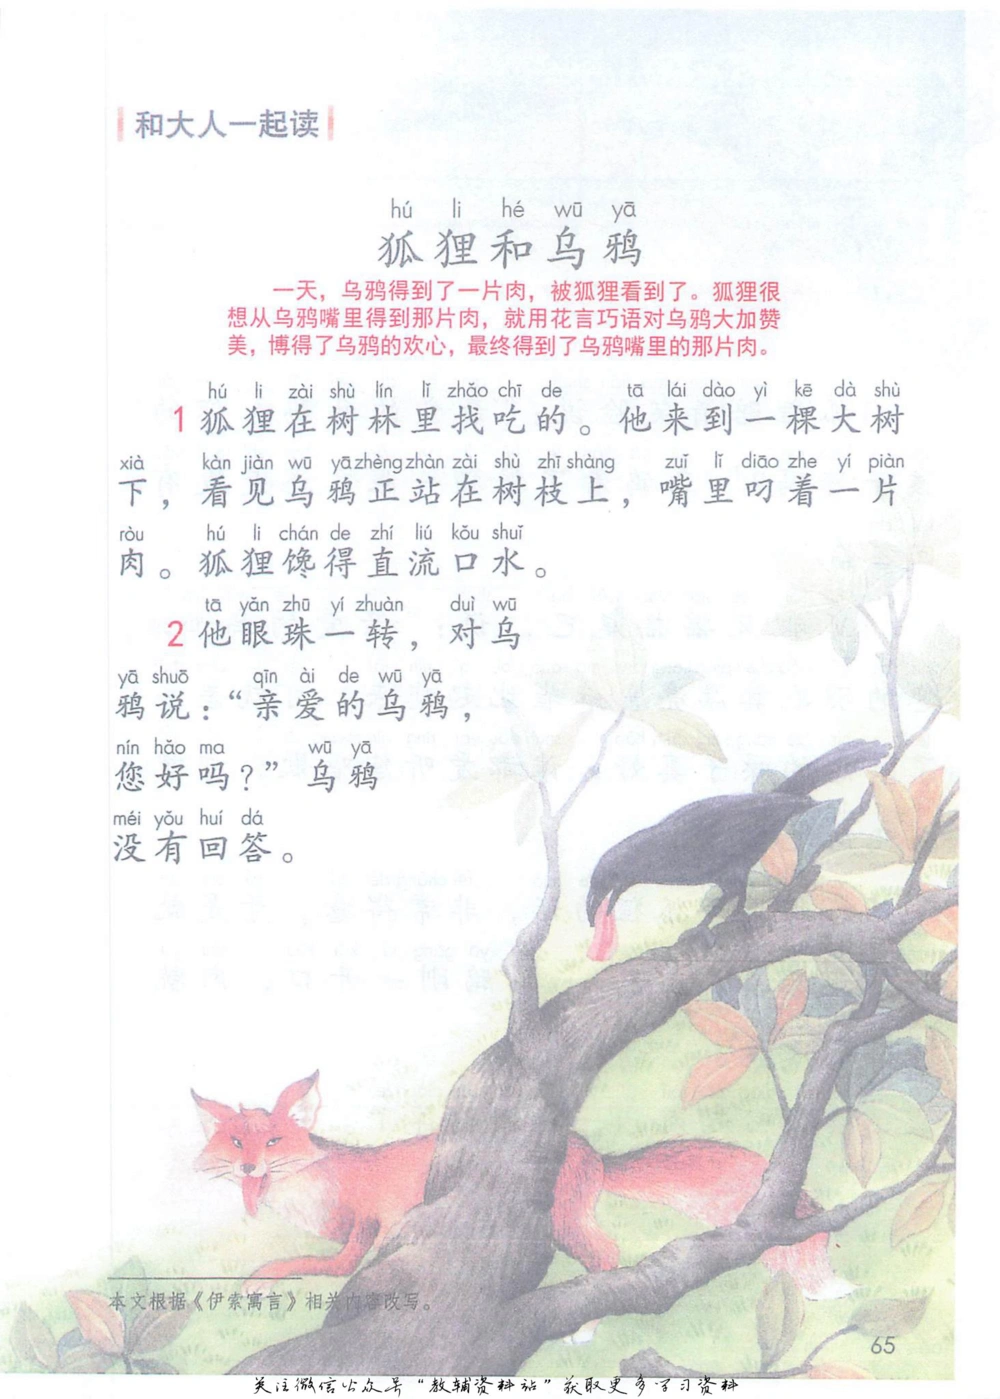 和大人一起读
hú li hé wū yā
狐狸和乌鸦
一天，乌鸦得到了一片肉，被狐狸看到了。狐狸很
想从乌鸦嘴里得到那片肉，就用花言巧语对乌鸦大加赞
美，博得了乌鸦的欢心，最终得到了乌鸦嘴里的那片肉。
hú li zài shù lín lǐ zhǎo chī de tā lái dào yì kē dà shù
1 狐狸在树林里找吃的。他来到一棵大树
xià kàn jiàn wū yā zhèng zhàn zài shù zhī shàng zuǐ lǐ diāo zhe yí piàn
下，看见乌鸦正站在树枝上，嘴里叼着一片
ròu hú li chán de zhí liú kǒu shuǐ
肉。狐狸馋得直流口水。
tā yǎn zhū yí zhuàn duì wū
2 他眼珠一转，对乌
yā shuō qīn ài de wū yā
鸦说：“亲爱的乌鸦，
nín hǎo ma wū yā
您好吗？”乌鸦
méi yǒu huí dá
没有回答。
本文根据《伊索寓言》相关内容改写。
65
关注微信公众号“教辅资料站”获取更多学习资料